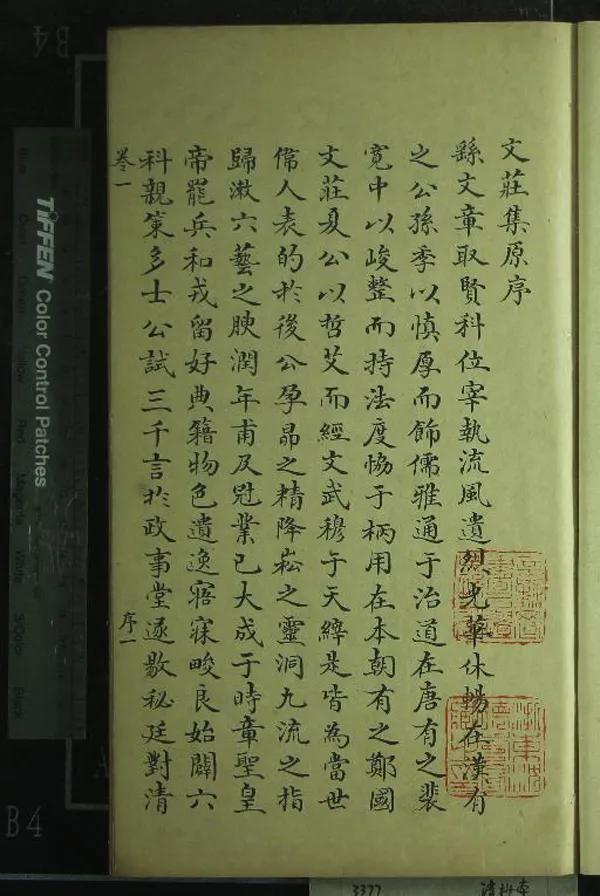 文莊集原序
繇文章取賢科位宰執流風遺烈光華休暢在漢有
之公孫季以慎厚而飾儒雅通于治道在唐有之裴
寛中以峻整而持法度恊于柄用在本朝有之鄭國
文莊夏公以哲艾而經文武穆于天縡是皆為當世
偉人表的於後公孕昴之精降崧之靈洞九流之指
歸漱六藝之腴潤年甫及冠業已大成于時章聖皇
帝罷兵和戎留好典籍物色遺逸寤寐畯良始闢六
科親策多士公試三千言於政事堂遂敭秘廷對清
卷一
序一
TIFFEN Color Control Patches
Blue
Green
Yellow
Red
Magenta
White
3/Color
Black
B4
B4
A
3377